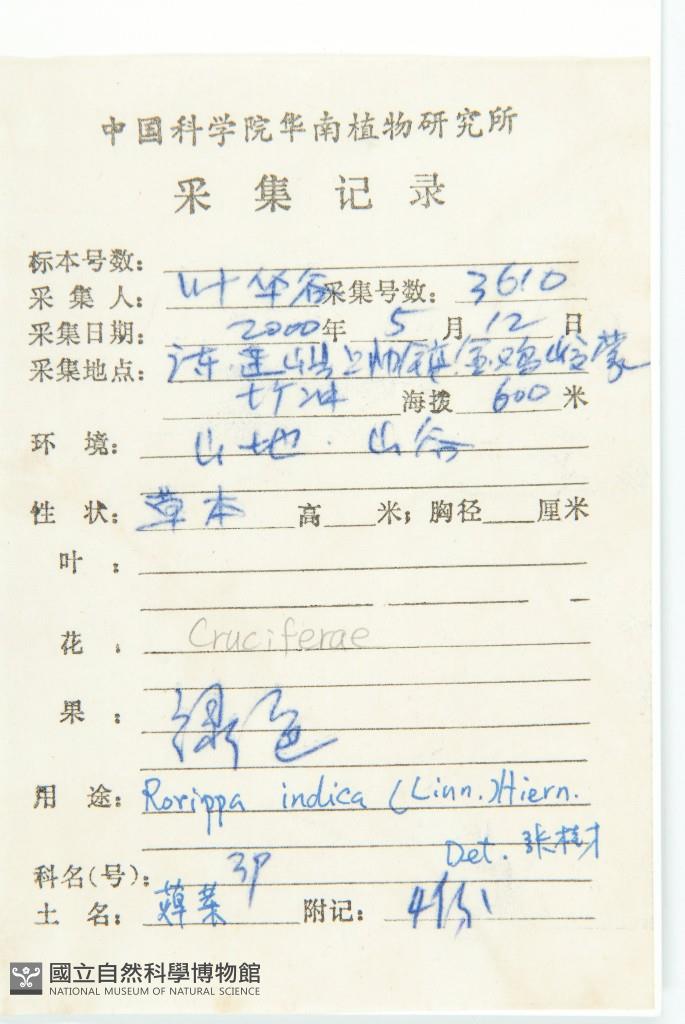 中国科学院华南植物研究所
采集记录
标本号数：
采集人： 叶华谷 采集号数： 3610
采集日期： 2000年 5 月 12 日
采集地点： 连山县上帅镇金鸡
海拨 600 米
环 境： 山地．山谷
性 状： 草本 高 米；胸径 厘米
叶 ：
花 ： Cruciferae
果 ： 绿色
用 途： Rorippa indica (Linn.) Hiern.
Det. 张桂才
科名(号)：
土 名： 蔊菜 附记： 4份
國立自然科學博物館
NATIONAL MUSEUM OF NATURAL SCIENCE